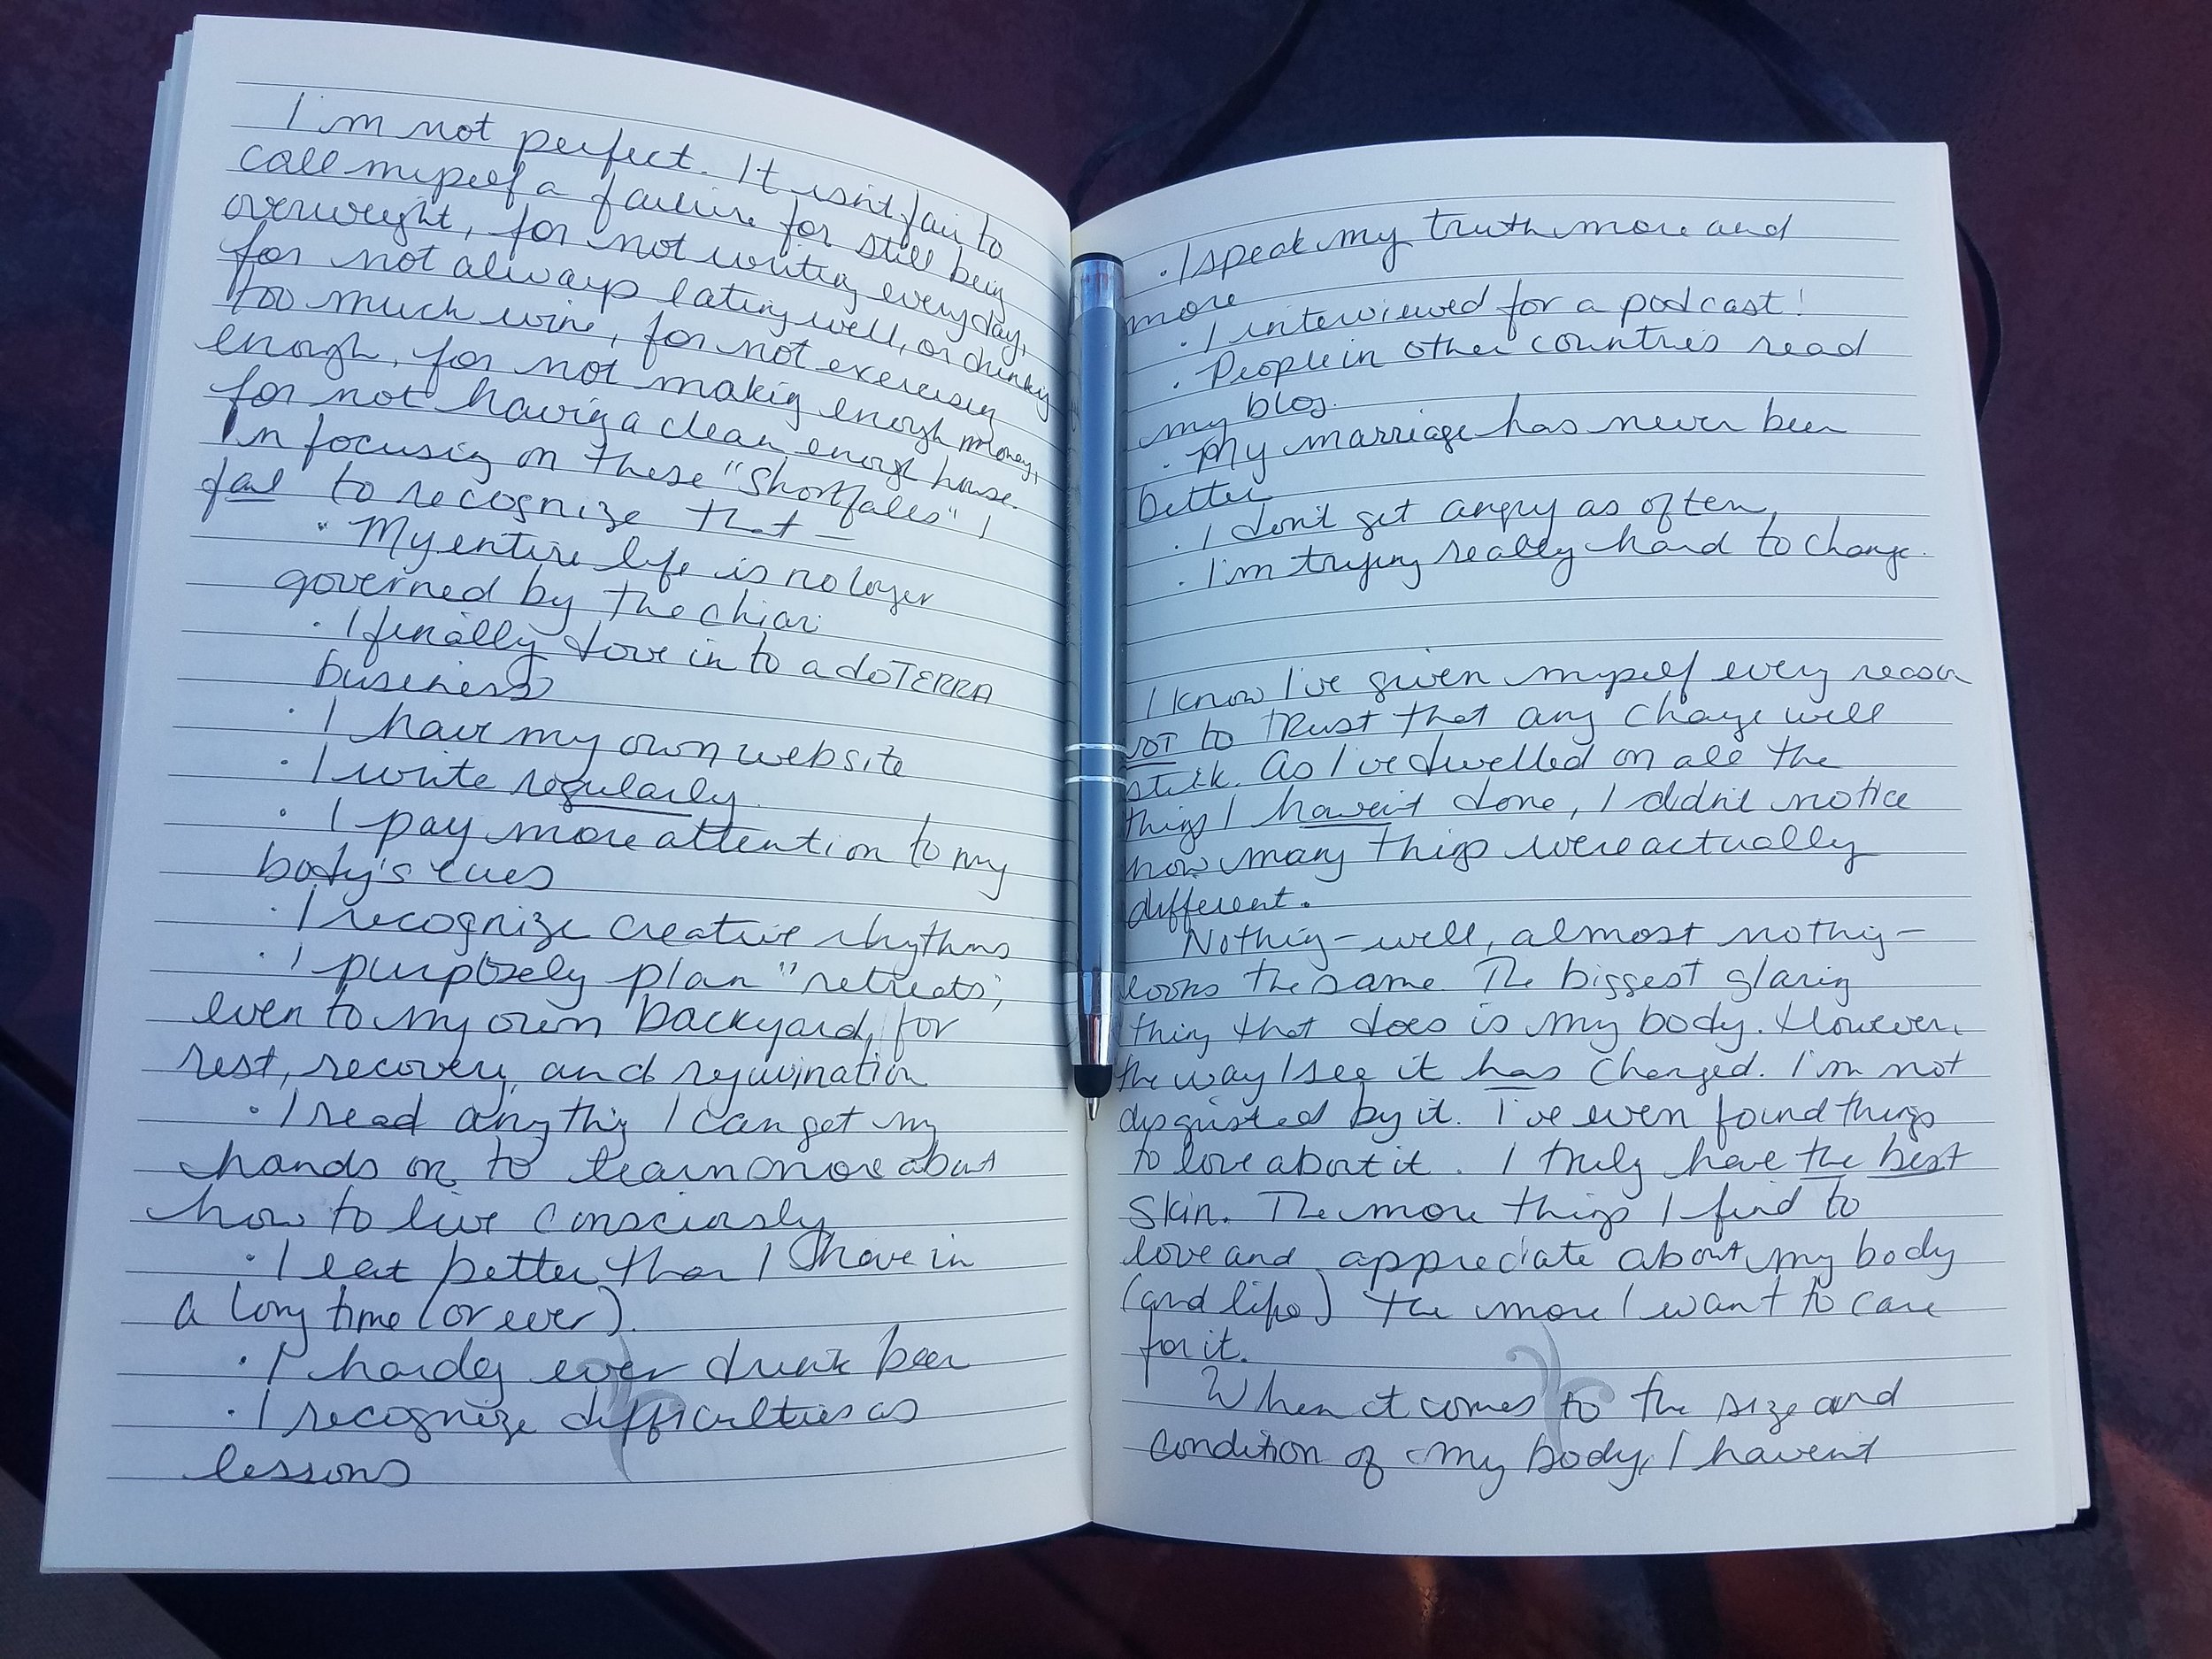 I'm not perfect. It isn't fair to
call myself a failure for still being
overweight, for not writing everyday,
for not always eating well, or drinking
too much wine, for not exercising
enough, for not making enough money,
for not having a clean enough house.
In focusing on these "shortfalls" I
fail to recognize that —
• My entire life is no longer
governed by the chiari
• I finally dove in to a doTERRA
business
• I have my own website
• I write regularly.
• I pay more attention to my
body's cues
• I recognize creative rhythms
• I purposely plan "retreats",
even to my own backyard, for
rest, recovery, and rejuvination
• I read anything I can get my
hands on to learn more about
how to live consciously
• I eat better than I have in
a long time (or ever).
• I hardly ever drink beer
• I recognize difficulties as
lessons
• I speak my truth more and
more
• I interviewed for a podcast!
• People in other countries read
my blog.
• My marriage has never been
better
• I don't get angry as often.
• I'm trying really hard to change.
I know I've given myself every reason
not to trust that any change will
stick. As I've dwelled on all the
things I haven't done, I didn't notice
how many things were actually
different.
Nothing – well, almost nothing –
looks the same. The biggest glaring
thing that does is my body. However,
the way I see it has changed. I'm not
disgusted by it. I've even found things
to love about it. I truly have the best
skin. The more things I find to
love and appreciate about my body
(and life) the more I want to care
for it.
When it comes to the size and
condition of my body, I haven't